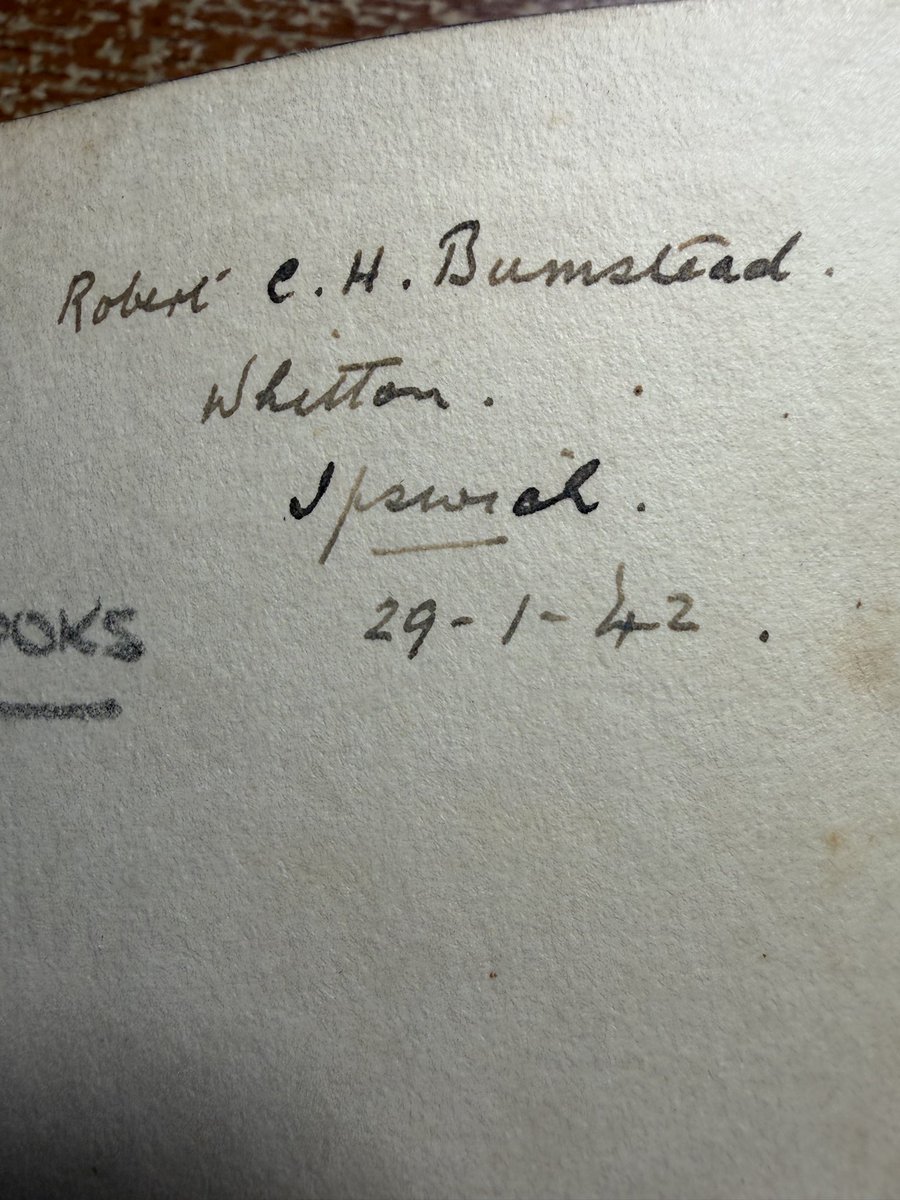 Robert C. H. Bumstead.
Whitton.
Ipswich.
OOKS
29-1-42.